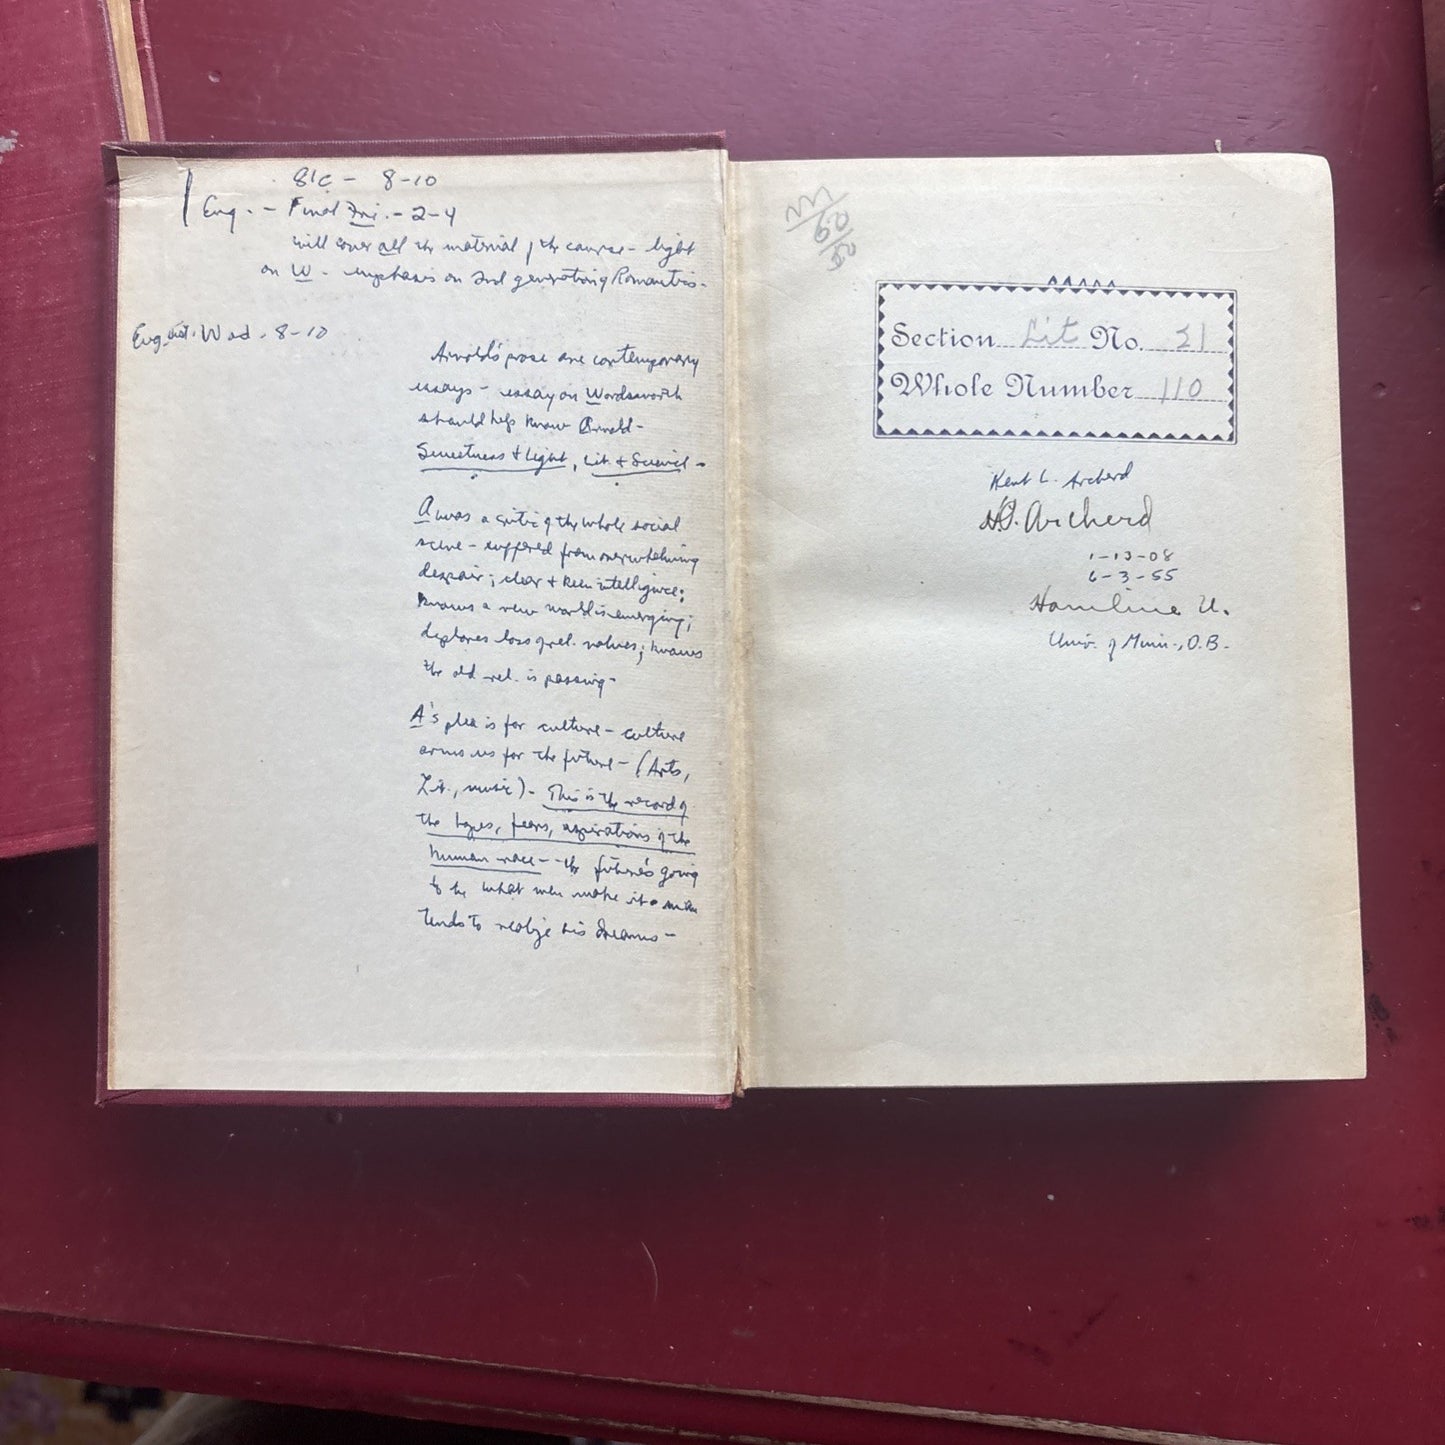 8-10
Eng. - Final Fri. - 2-4
will cover all the material of the course - light
on W - emphasis on 2nd generation of Romantics -
Wed. 8-10
Arnold's prose are contemporary
essays - essay on Wordsworth
should help know Arnold -
Sweetness & Light, Lit. & Science -
A was a critic of the whole social
scene - suffered from overwhelming
despair; clear & keen intelligence;
knows a new world is emerging;
deplores loss of rel. values; knows
the old rel. is passing -
A's plea is for culture - culture
arms us for the future - (Arts,
Lit., music) - This is the record of
the hopes, fears, aspirations of the
human race - the future's going
to be what men make it - man
tends to realize his dreams -
Section Lit No. 21
Whole Number 110
Kent L. Archerd
H.J. Archerd
1-13-08
6-3-55
Hamline U.
Univ. of Minn., O.B.